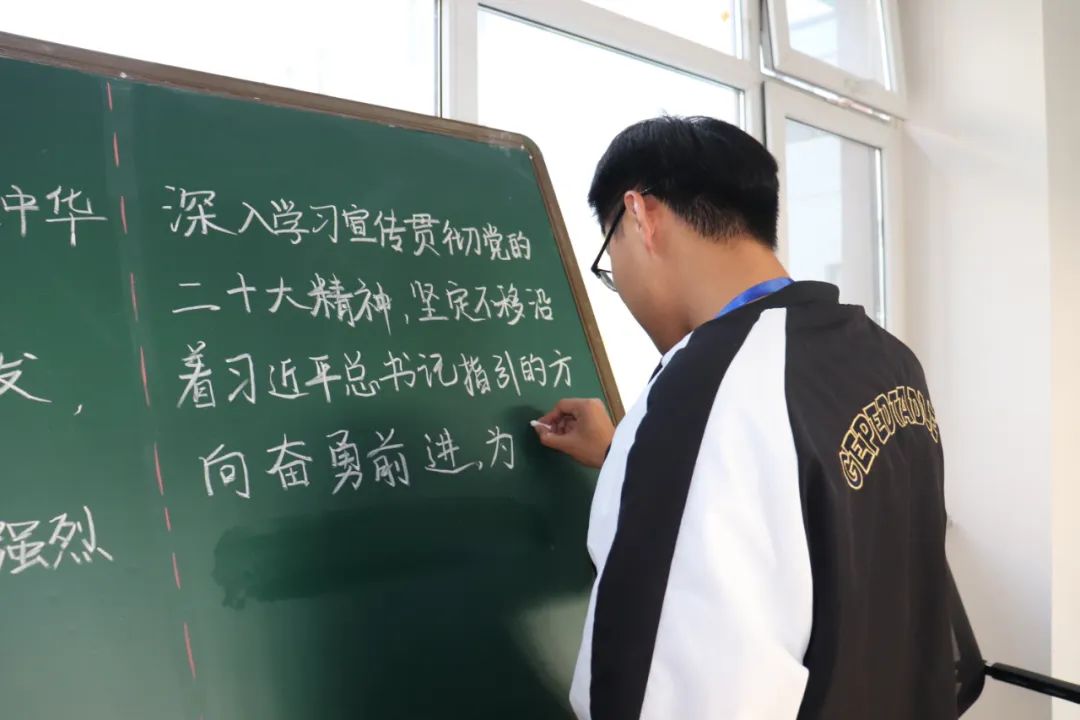 中华
发，
强烈
深入学习宣传贯彻党的
二十大精神，坚定不移沿
着习近平总书记指引的方
向奋勇前进，为
GEPEDTADIS